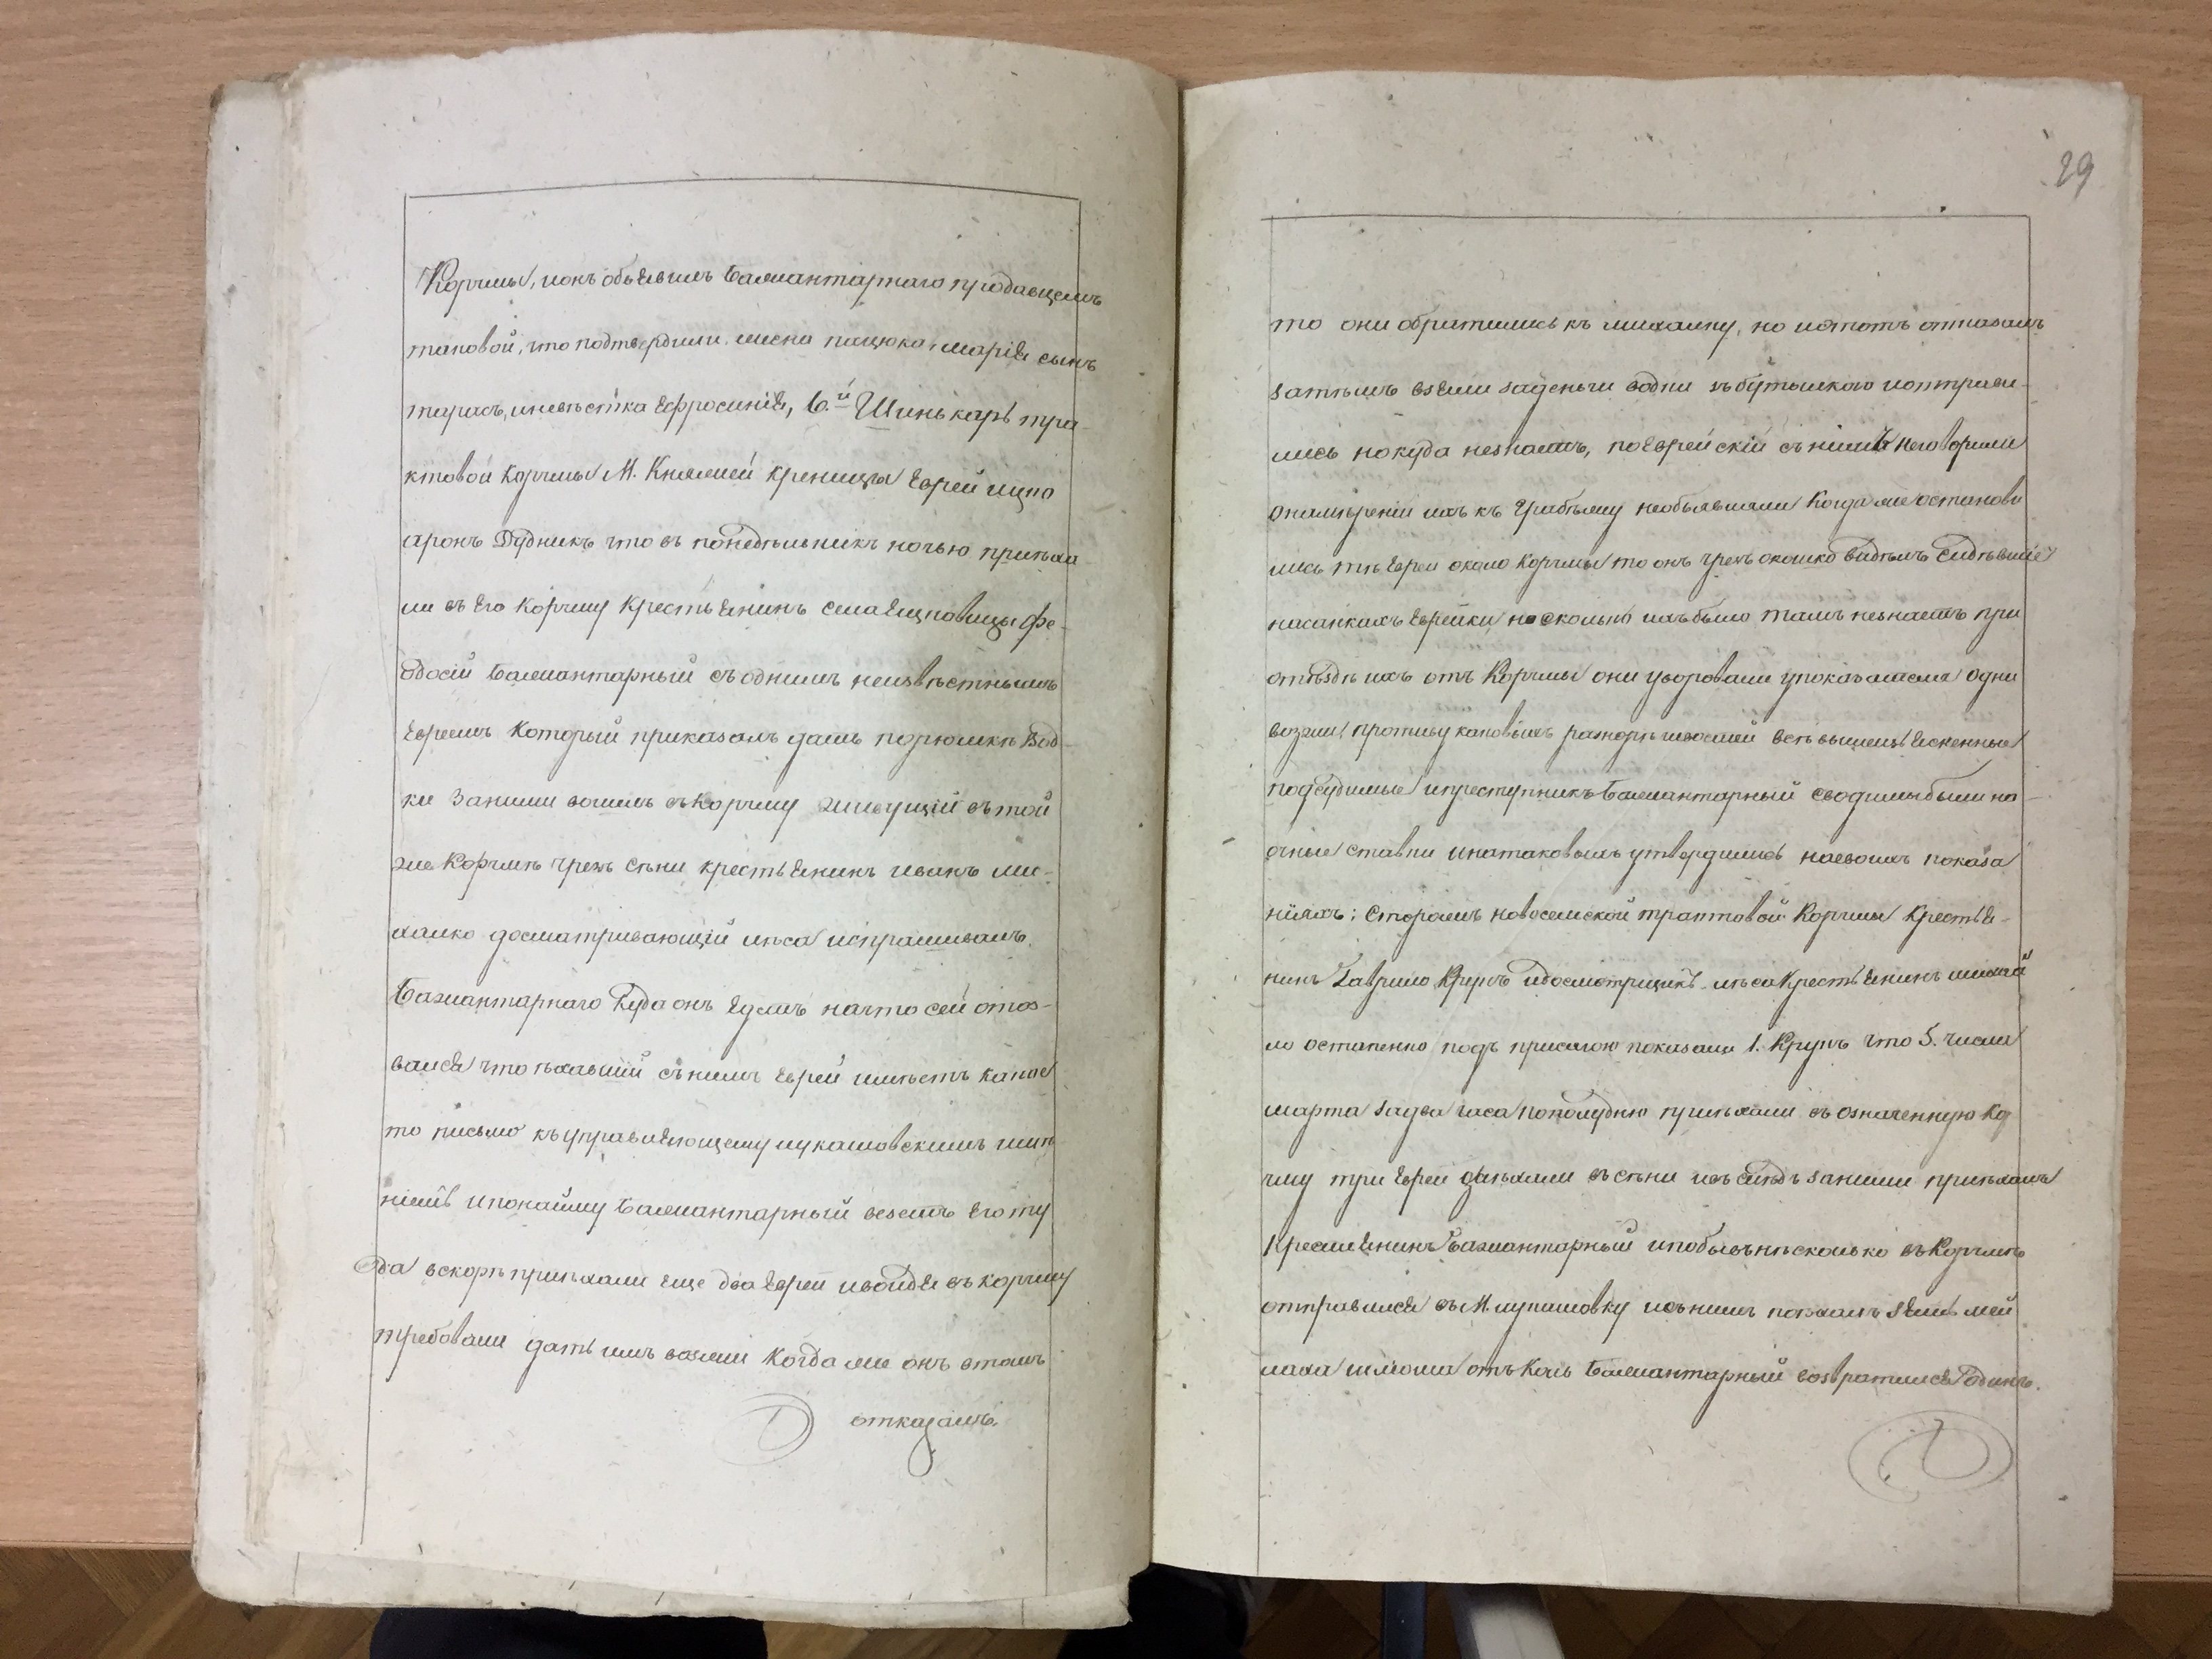 Корчмы, ионъ объявилъ Бажантарнаго продавцемъ
таковой, что подтвердили жена пацюка, марія сынъ
тарасъ, иневѣстка Ефросинія, 6.й Шинькарь тра-
ктовой корчмы М. Княжей криницы Еврей ицко
аронъ Дудникъ что въ понедѣльникъ ночью приѣха
ли въ Его корчму крестьянинъ села Ецковицы Фе-
одосій Бажантарный съоднимъ неизвѣстнымъ
Евреемъ который приказалъ дать порюмкѣ Вод-
ки Заними вошелъ въкорчму живущій вътой
же корчмѣ чрезъ сѣни крестьянинъ иванъ ми-
халко досматривающій лѣса испрашивалъ
Бажантарнаго куда онъ Едетъ начто сей отоз-
вался что ѣхавшій снимъ Еврей имѣетъ какое
то письмо къуправляющему лукашовскимъ имѣ
ніемъ ипонайму Бажантарный везетъ Его ту
да вскорѣ приѣхали еще два Еврея ивойдя въ корчму
требовали дать имъ возжи когда же онъ втомъ
отказалъ.
29
то они обратились къ михалку, но иэтотъ отказалъ
затѣмъ взяли заденьги водки въбутылкою иотправи-
лись нокуда незнаетъ, поеврейскій снимъ неговорили
онамѣреніи ихъ къ Грабѣжу необъявляли когда же останови
лись тѣ Евреи около корчмы то онъ чрезъ окошко видѣлъ сидѣвшіе
насанкахъ Еврейки носколько ихъбыло тамъ незнаетъ при
отъѣздѣ ихъ отъ корчмы они уворовали одни
возжи, противу каковыхъ всѣ вышеизъясненные
подсудимые ипреступникъ Бажантарный сводимыбыли на
очные ставки инатаковыхъ утвердились насвоихъ показа
ніяхъ: сторожъ новоселской трактовой корчмы крестья-
нинъ Гаврило Крукъ идосмотрщикъ лѣса крестьянинъ михай
ло остапенко подъ присягою показали 1. Крукъ что 5. числа
марта задва часа пополудню приѣхали въ означенную кор
чму три Еврея въ сѣни ивъ слѣдъ заними приѣхалъ
крестьянинъ Бажантарный ипобывъ нѣсколько въ корчмѣ
отправился въ М. лукашовку иснимъ поѣхалъ зять мей
лаха шмоиа отъ коль Бажантарный возвратился Одинъ.